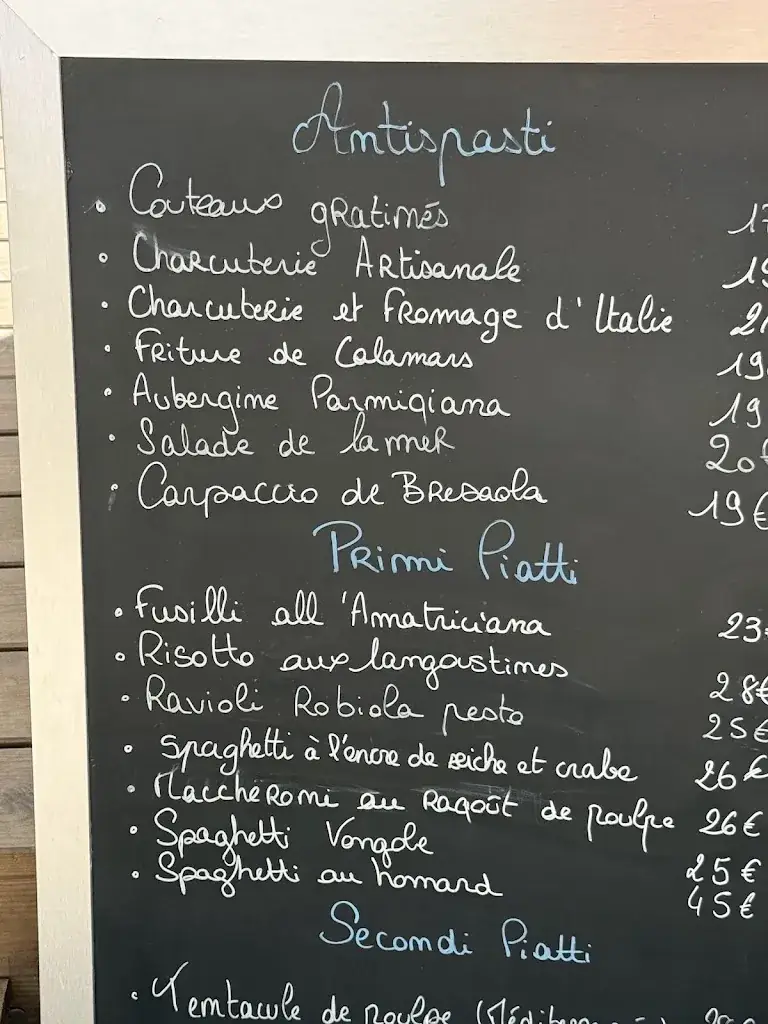 Antispasti
• Couteaux gratinés 17
• Charcuterie Artisanale 19
• Charcuterie et fromage d'Italie 21
• Friture de Calamars 19
• Aubergine Parmigiana 19
• Salade de la mer 20€
• Carpaccio de Bresaola 19€
Primi Piatti
• Fusilli all 'Amatriciana 23€
• Risotto aux langoustines 28€
• Ravioli Robiola pesto 25€
• Spaghetti à l'encre de seiche et crabe 26€
• Maccheroni au Ragoût de poulpe 26€
• Spaghetti Vongole 25€
• Spaghetti au homard 45€
Secondi Piatti
• Tentacule de poulpe